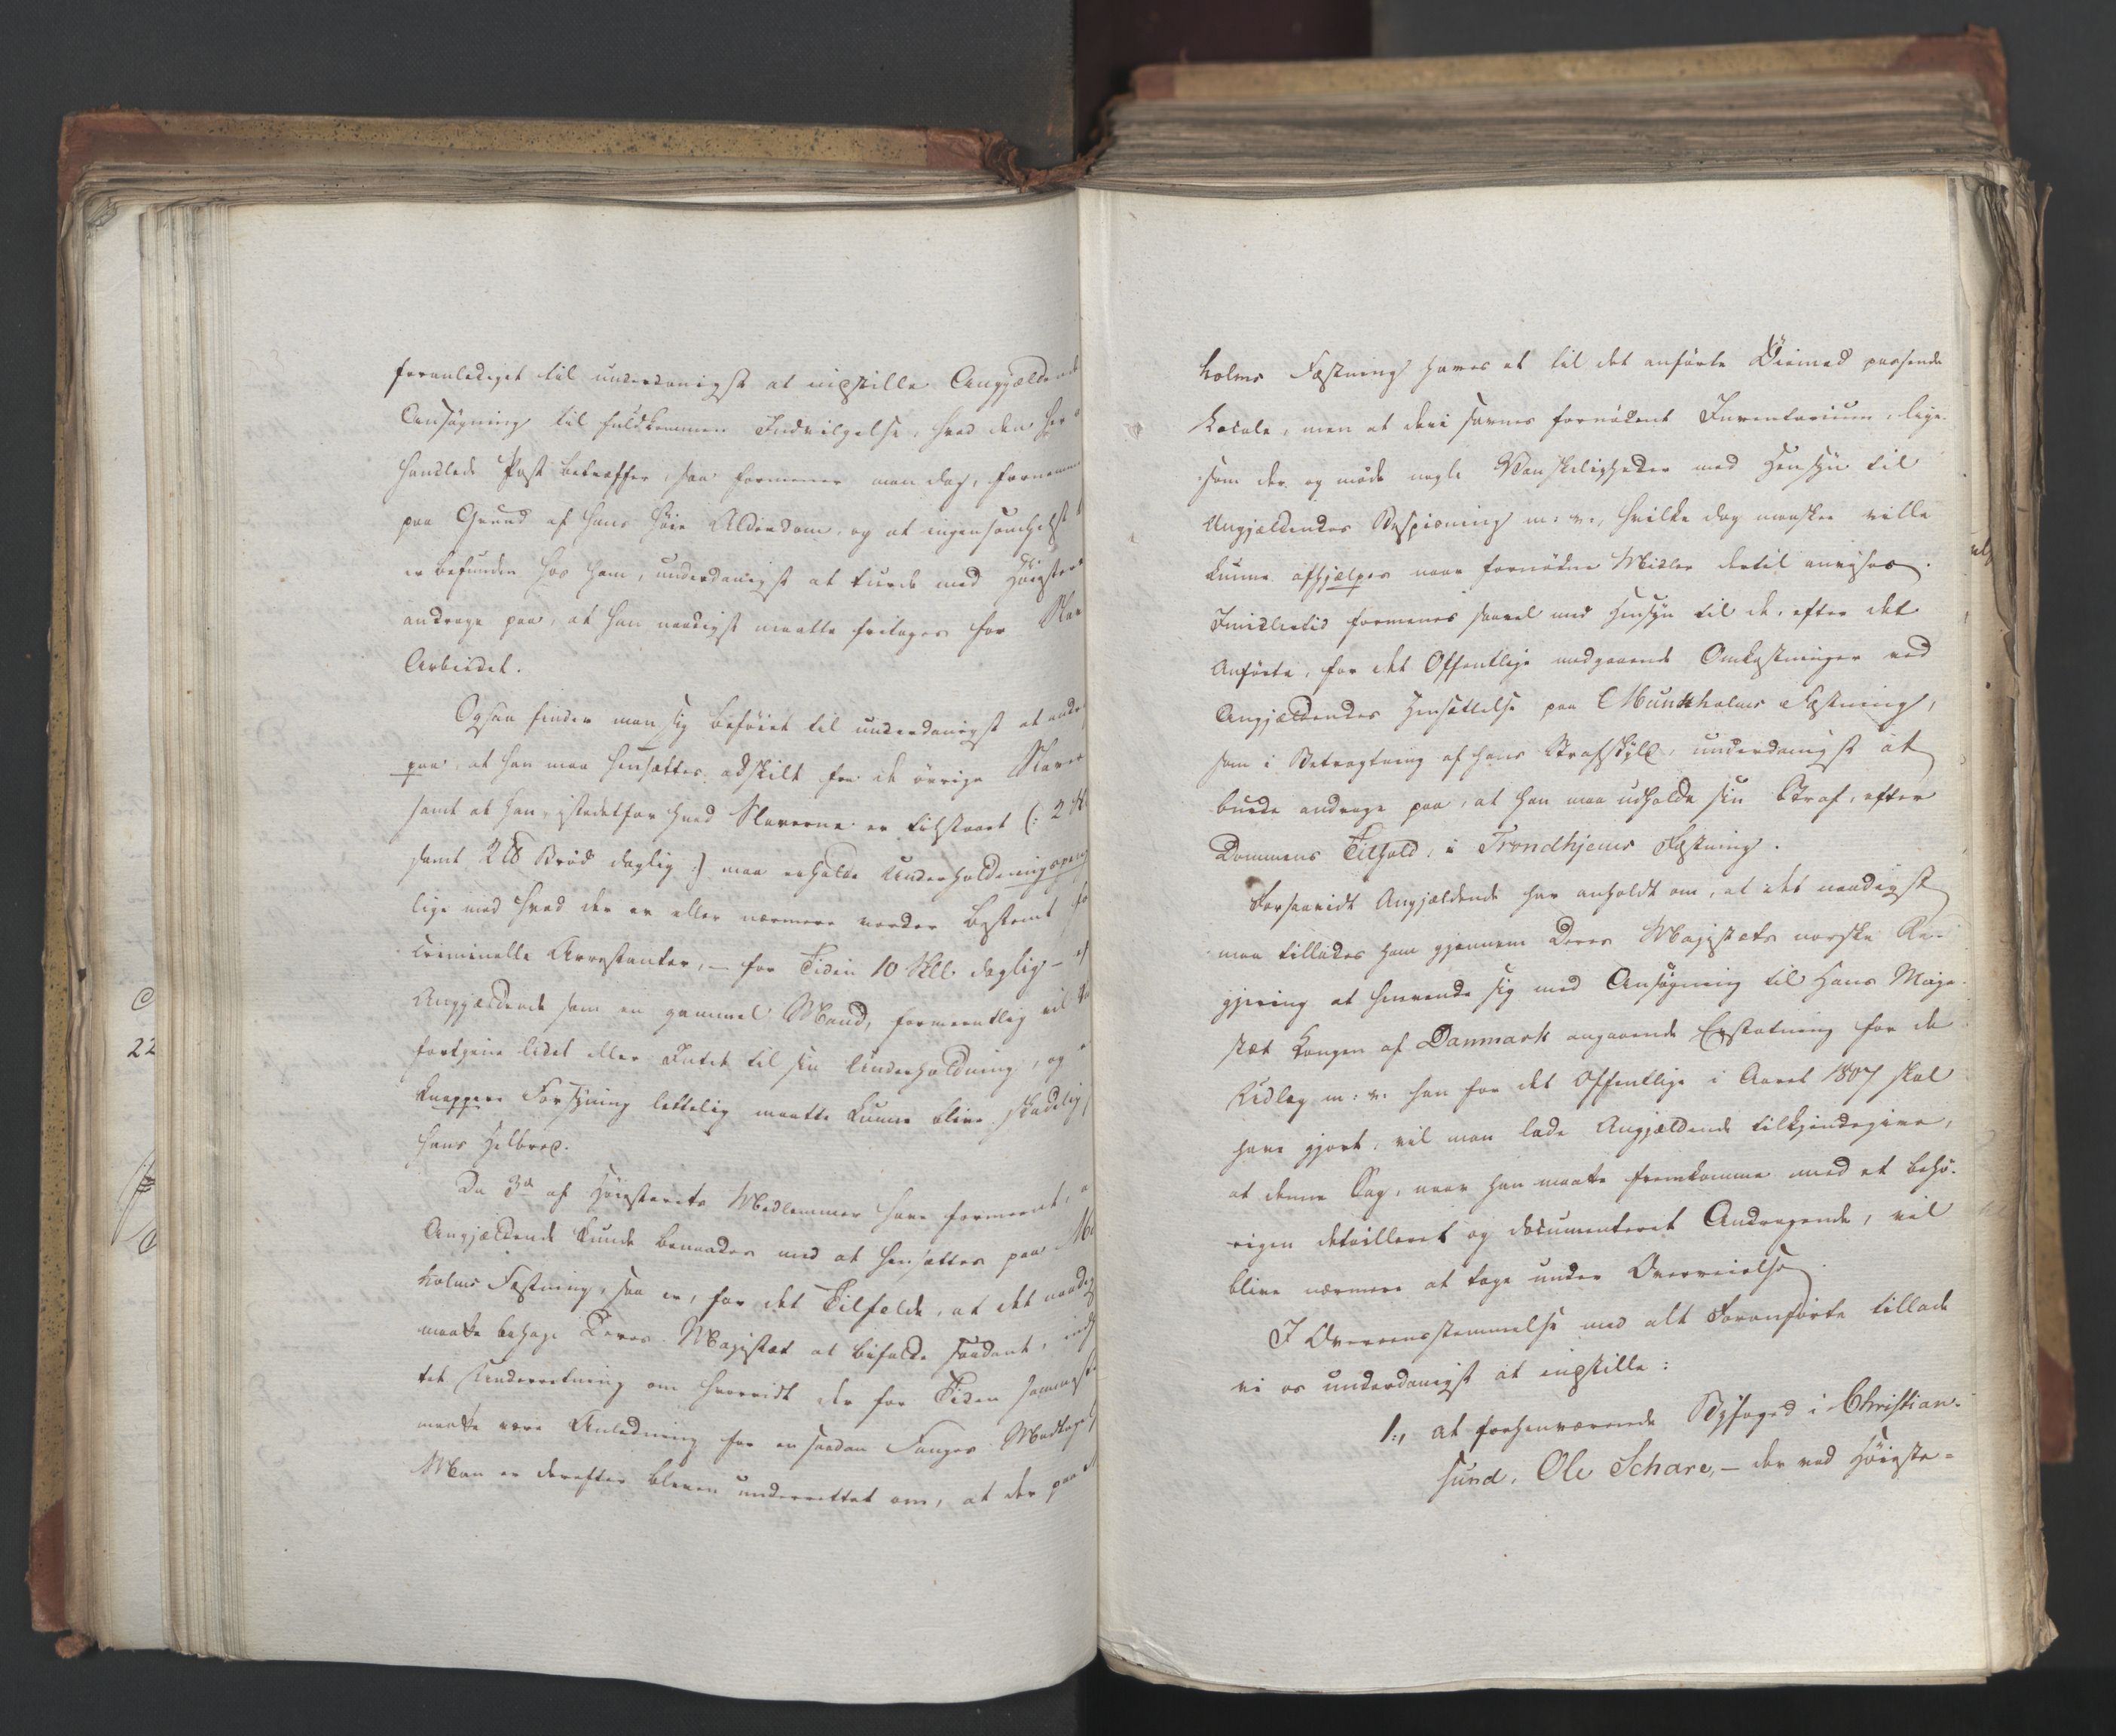 foranlediget til underdanigst at inpstille Angjældende
Ansøgning til fuldkommen Indvilgelse, hvad den her
handlede Post betreffer, saa formener man dog, fornemm
paa Grund af hans høie Alderdom, og at ingensomhelst
er befunden hos ham, underdanigst at turde med Høieste
andrage paa, at han naadigst maatte fritages for Slave
Arbeidet.
Ogsaa finder man sig beføiet til underdanigst at andr
paa, at han maa hensættes adskilt fra de øvrige Slaver
samt at han, istedetfor hvad Slaverne er tilstaaet (: 2 sk
samt 2 ℔ Brød daglig :) maa erholde Underholdningspeng
lige med hvad der er eller nærmere vorder bestemt fo
criminelle Arrestanter, – for Tiden 10 Skll. daglig –
Angjældende som en gammel Mand, formeentlig vil
fortjene lidet eller Intet til sin Underholdning, og
knappere Forsyning lettelig maatte kunne blive skadelig
hans Helbred.
Da 3de af Høiesterets Medlemmer have formeent, a
Angjældende kunde benaades med at hensættes paa Mu
holms Fæstning, saa er, for det Tilfælde, at det naadig
maatte behage Deres Majestæt at bifalde saadant, ind
tet Underretning om hvorvidt der for Tiden sammest
maatte være Anledning for en saadan Fanges Modtag
Man er derefter bleven underrettet om, at der paa
C
22
holms Fæstning haves et til det anførte Øiemed passende
Locale, men at deri savnes fornødent Inventarium, lige-
som der og møde nogle Vanskeligheder med Hensyn til
Angjældendes Bespiisning m: v:, hvilke dog maaskee ville
kunne afhjælpes naar fornødne Midler dertil anvises.
Imidlertid formenes saavel med Hensyn til de, efter det
Anførte, for det Offentlige medgaaende Omkostninger ved
Angjældendes Hensættelse paa Munkholms Fæstning,
som i Betragtning af hans Strafskyld, underdanigst at
burde andrage paa, at han maa udholde sin Straf, efter
Dommens Tilhold, i Trondhjems Fæstning.
Forsaavidt Angjældende har anholdt om, at det naadigst
maa tillades ham gjennem Deres Majestæts norske Re-
gjering at henvende sig med Ansøgning til Hans Maje-
stæt Kongen af Danmark angaaende Erstatning for de
Udlæg m: v: han for det Offentlige i Aaret 1807 skal
have gjort, vil man lade Angjældende tilkjendegive,
at denne Sag, naar han maatte fremkomme med et behø-
rigen detailleret og documenteret Andragende, vil
blive nærmere at tage under Overveielse.
I Overeensstemmelse med alt Foranførte tillade
vi os underdanigst at inpstille:
1:, at forhenværende Byfoged i Christian-
sund, Ole Schare, – der ved Høieste-